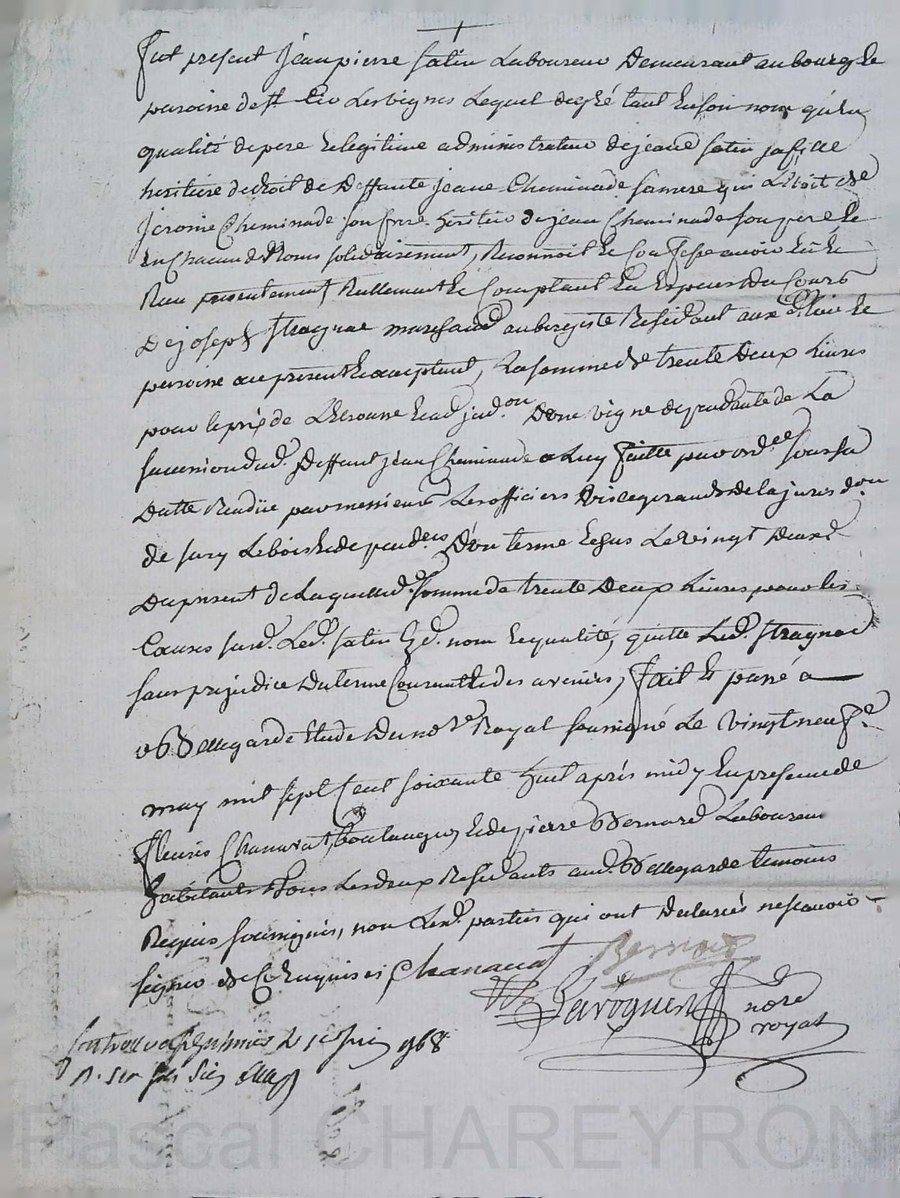 fut present Jean pierre Satin Laboureur Demeurant au bourg Et
paroisse de St Les vignes Lequel de gré tant En son nom qu'en
qualité de pere Et legitime administrateur de jeane Satin sa fille
heritiere de droit de Deffunte jeane Cheminade sa mere qui L'Etoit de
Jerome Cheminade son frere heritier de jean Cheminade son pere Et
En Chacun des Noms solidairement, Reconnoit Et Confesse avoir Eü Et
Reçu presentement Rellement Et Comptant En Especes Du Cours
De joseph Stragnac marchand aubergiste Residant aux Et
paroisse au present Et acceptant, La somme de trente Deux Livres
pour le prix de L'Etrousse Et adjudon D'une vigne dependante de La
succession dud. Deffunt jean Cheminade a Luy faitte par ordce sous sa
Datte Rendüe par messieurs Les officiers de la juris don
de Sury Le bois Et dependces D'un terme Echus Le vingt Deux
Du present de Laquelle de. somme de trente Deux Livres pour les
Causes susd. Led. Satin Esd. nom Et qualité, quitte Led. Stragnac
sans prejudice Du terme Courant Et des avenirs, fait Et passé a
Bellegarde Etude Du nore Royal soussigné Le vingt neuf
may mil sept Cent soixante huit après midy En presence de
fleuris Chanavat, boulanger, Et de pierre Bernard Laboureur
habitants Tous Les deux Residants aud. Bellegarde temoins
Requis soussignés, non Lesd. parties qui ont Declarés ne scavoir
signer de Ce Enquises Chanavat Bernard
Laroguery nore
royal
Controllé a le 1er juin 1768
R.
Pascal CHAREYRON